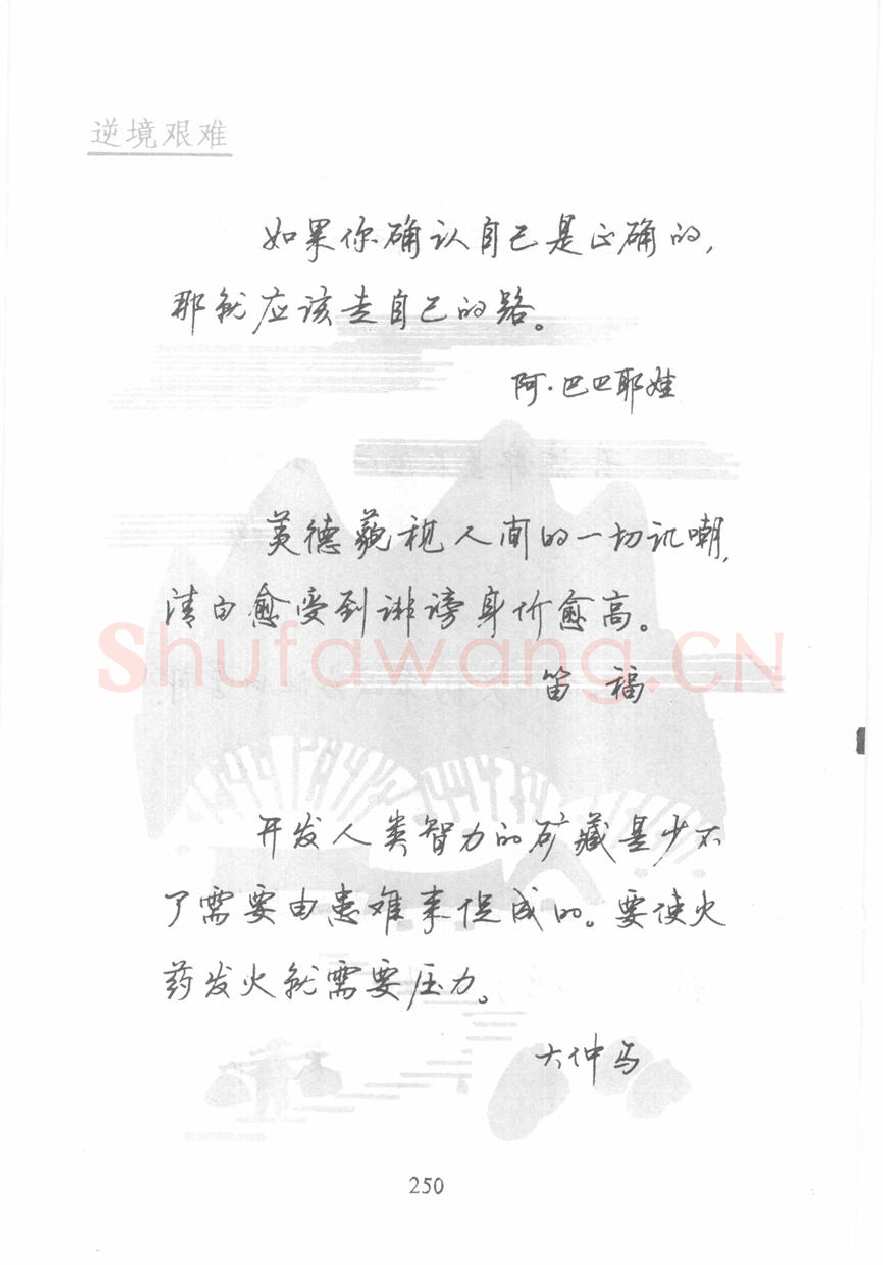 逆境艰难
如果你确认自己是正确的,
那就应该走自己的路。
阿·巴巴耶娃
美德藐视人间的一切讥嘲,
清白愈受到诽谤身价愈高。
Shufawang.CN
笛 福
开发人类智力的矿藏是少不
了需要由患难来促成的。要使火
药发火就需要压力。
大仲马
250